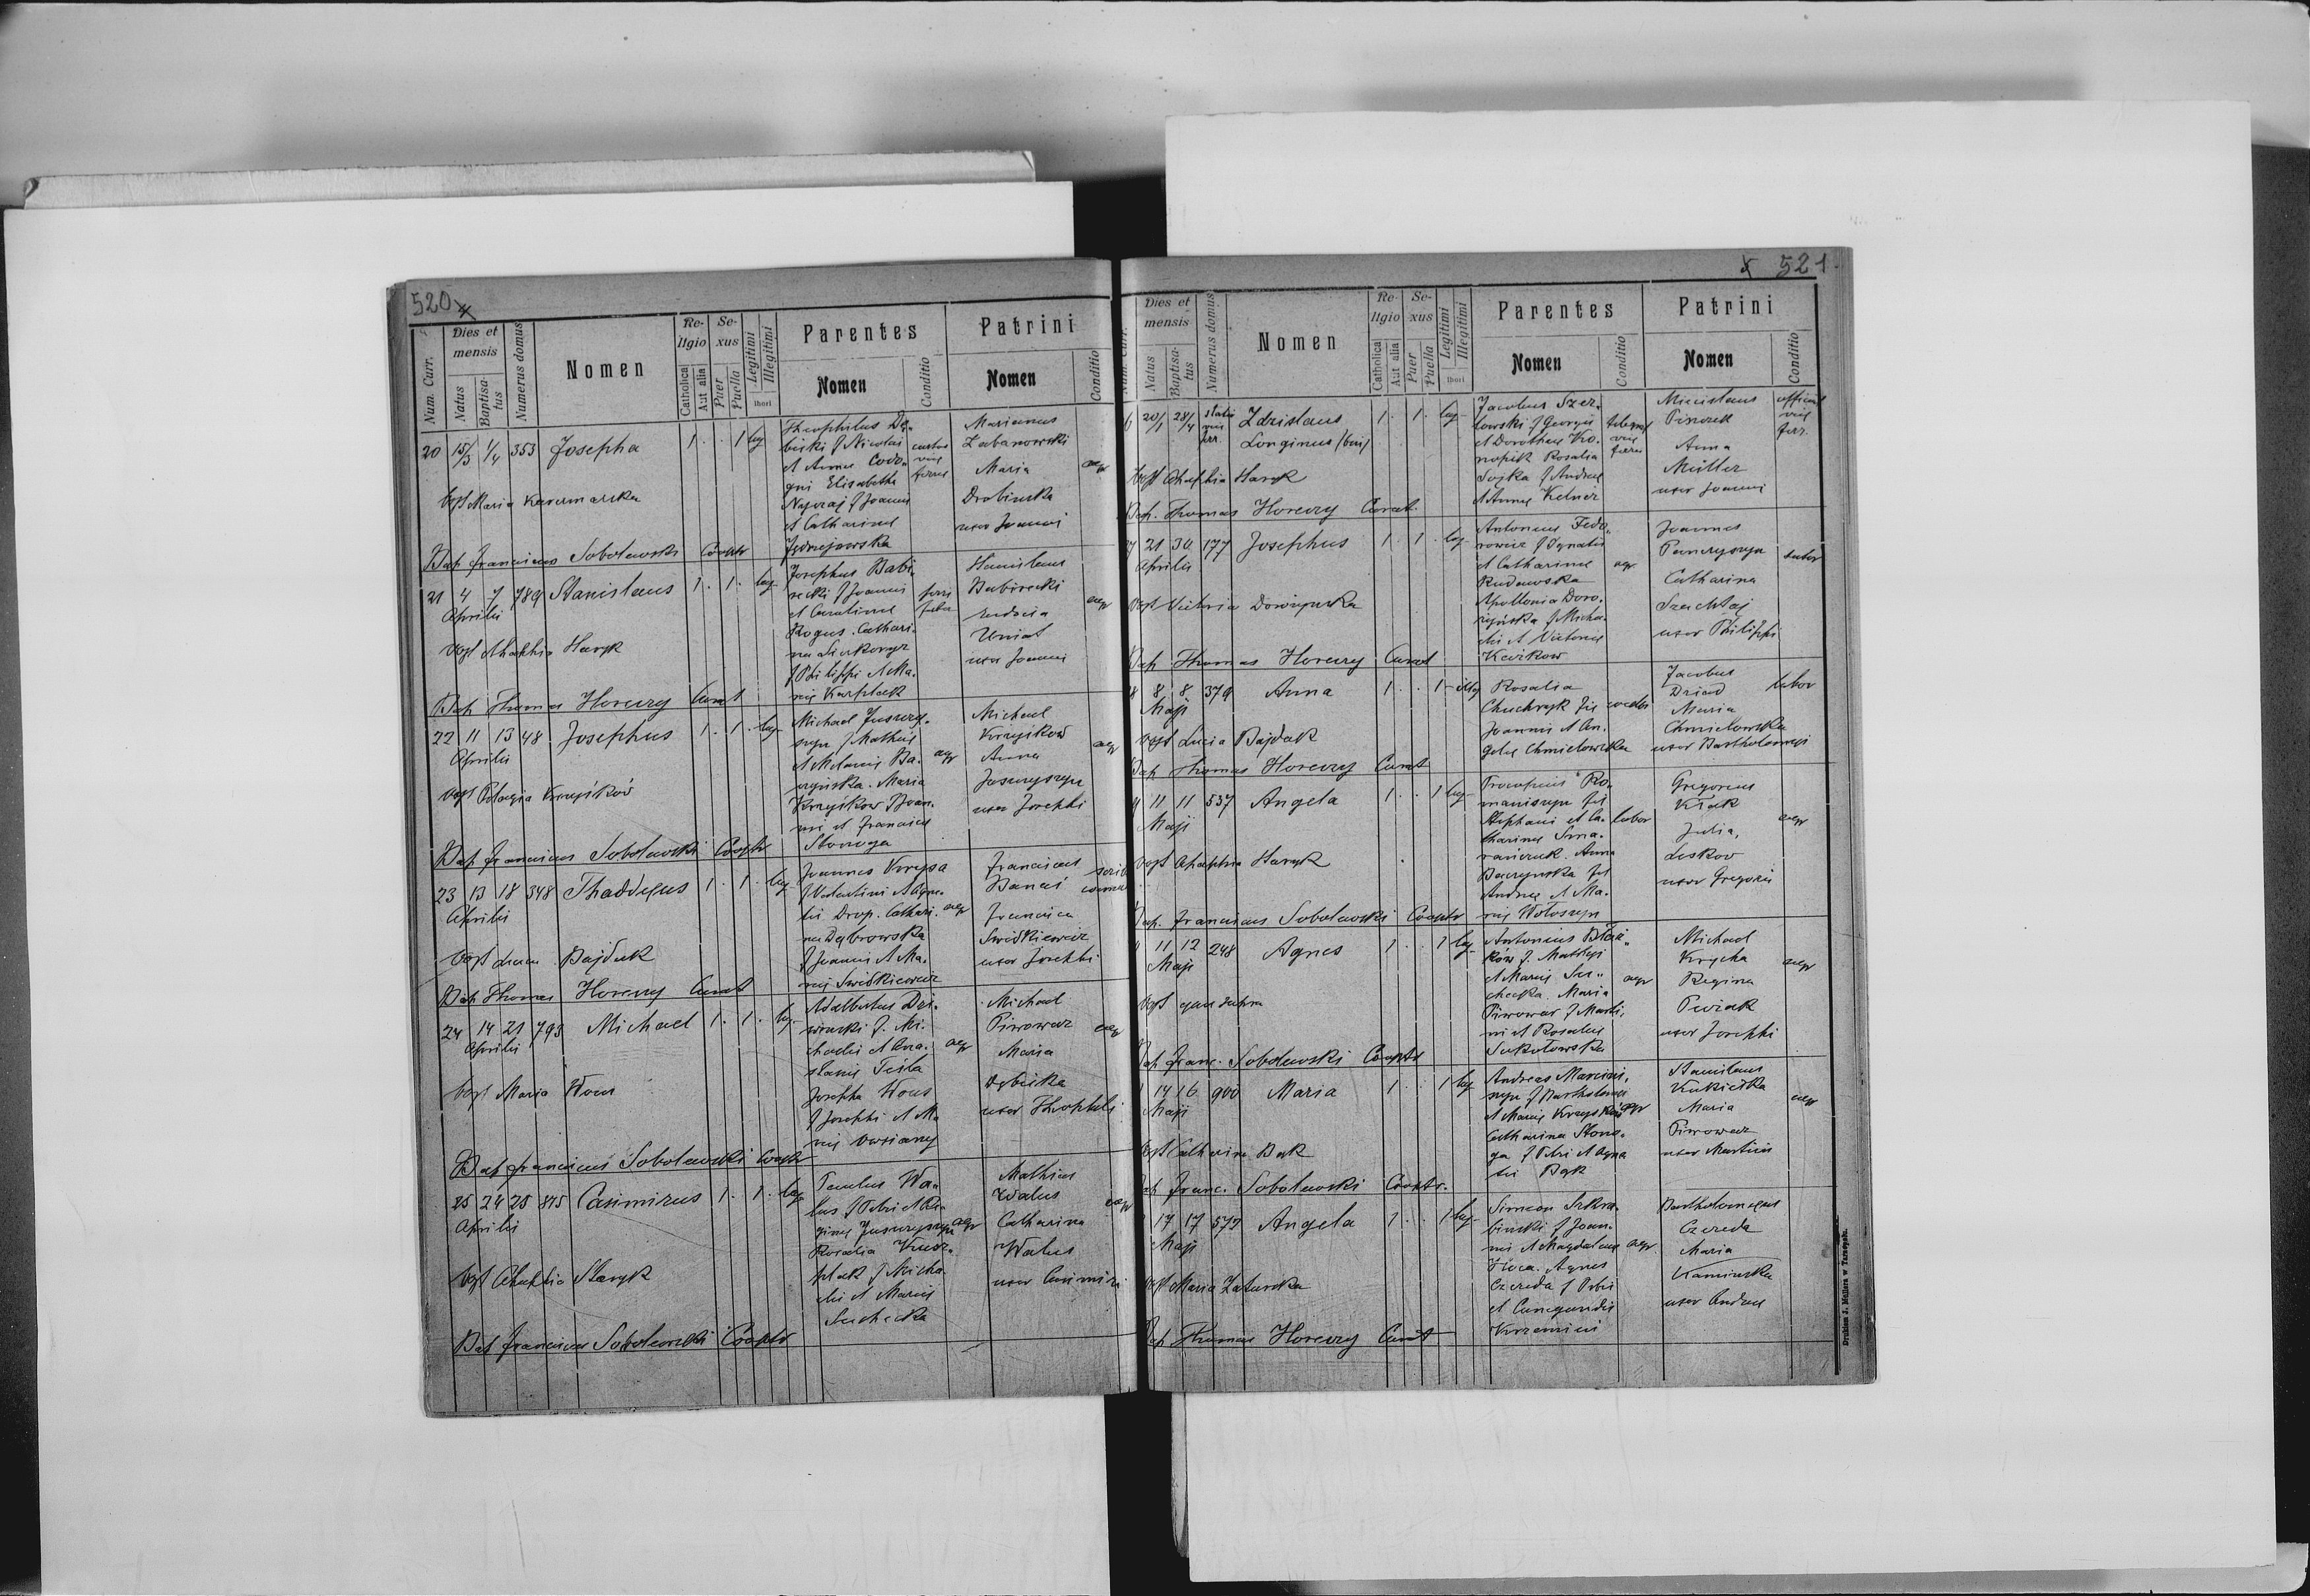 520
Num. Curr.
Dies et mensis
Natus
Baptisatus
Numerus domus
Nomen
Religio
Catholica
Aut alia
Sexus
Puer
Puella
Legitimi
Illegitimi
thori
Parentes
Nomen
Conditio
Patrini
Nomen
Conditio
20 15/3 1/4 353 Josepha 1 1 leg
Theophilus Dę-
biński f Nicolai
et Annae
Elisabetha
f Joannis
et Catharinae
Jędrzejowska
custos
viae
ferreae
Marianus
Łabanowski
Maria
Drabinska
uxor Joannis
agr
Obst Maria
Bap Franciscus Sobolewski Cooptr
21 4 7 789 Stanislaus 1 1 leg
Aprilis
Josephus Babi-
recki f Joannis
et Carolinae
Rogus. Cathari-
na
f Philippi et Ma-
riae Karplack
ferri
faber
Stanislaus
Babirecki
Eudocia
Uniat
uxor Joannis
agr
Obst Ahaphia Haryk
Bap Thomas Horeczy Curat
22 11 13 48 Josephus 1 1 leg
Aprilis
Michael Juszczy-
szyn f Mathiae
et Melaniae Ba-
czyńska. Maria
Krzyśkow f Joan-
nis et Franciscae
Stonoga
agr
Michael
Krzyśkow
Anna
Juszczyszyn
uxor Josephi
agr
Obst Pelagia Krzyśków
Bap Franciscus Sobolewski Cooptr
23 13 18 348 Thaddaeus 1 1 leg
Aprilis
Joannes Krzysa
f Valentini et Agne-
tis Drop. Cathari-
na Dąbrowska
f Joannis et Ma-
riae Świśkiewicz
agr
Franciscus
Banaś
Francisca
Świśkiewicz
uxor Josephi
Obst Lucia Bajdak
Bap Thomas Horeczy Curat
24 14 21 793 Michael 1 1 leg
Aprilis
Adalbertus Dzi-
winski f. Mi-
chaelis et Ana-
staniae Teśla
Josepha Wons
f Josephi et Ma-
riae
agr
Michael
Piwowar
Maria
Dębicka
uxor Theophili
agr
Obst Maria Wons
Bap Franciscus Sobolewski Cooptr
25 24 25 815 Casimirus 1 1 leg
Aprilis
Paulus Wa-
lus f Petri et Re-
ginae Juszczyszyn
Rosalia Kusz-
plak f Micha-
elis et Mariae
Suchecka
agr
Mathias
Walus
Catharina
Walus
uxor Casimiri
agr
Obst Ahaphia Haryk
Bap Franciscus Sobolewski Cooptr
521
Num. Curr.
Dies et mensis
Natus
Baptisatus
Numerus domus
Nomen
Religio
Catholica
Aut alia
Sexus
Puer
Puella
Legitimi
Illegitimi
thori
Parentes
Nomen
Conditio
Patrini
Nomen
Conditio
6 20/1 28/4 statio viae ferr. Zdzislaus 1 1 leg
Longinus /bin/
Jacobus Szer-
łowski f Georgii
et Dorotheae Ko-
nopik Rosalia
Sojka f Andreae
et Annae Kelner
telegraf
viae
ferreae
Miecislaus
Pinczek
Anna
Müller
uxor Joannis
official
viae
ferr.
Obst Ahaphia Haryk
Bap. Thomas Horeczy Curat.
7 21 30 177 Josephus 1 1 leg
Aprilis
Antonius Fedo-
rowicz f Ignatii
et Catharinae
Rudawska
Apollonia Doro-
żyńska f Micha-
elis et Victoriae
agr
Joannes
Panczyszyn
Catharina
Szachtaj
uxor Philippi
sutor
Obst Victoria
Bap Thomas Horeczy Curat
8 8 8 379 Anna 1 1 illeg
Maji
Rosalia
Chuchryk fil
Joannis et An-
gelae Chmielowska
Jacobus
Dziad
Maria
Chmielowska
uxor Bartholomaei
labor
Obst Lucia Bajdak
Bap Thomas Horeczy Curat
11 11 537 Angela 1 1 leg
Maji
Procopius Ro-
maniszyn fil
Stephani et Ca-
tharinae
Anna
Baczynska fil
Andreae et Ma-
riae Wołoszyn
labor
Gregorius
Kłak
Julia
Leskow
uxor Gregorii
agr
Obst Ahaphia Haryk
Bap. Franciscus Sobolewski Cooptr
11 12 248 Agnes 1 1 leg
Maji
Antonius
f. Mathaei
et Mariae Su-
checka. Maria
Piwowar f Marti-
ni et Rosaliae
Sokołowska
agr
Michael
Krycha
Regina
Pwiak
uxor Josephi
agr
Obst
Bap Franc. Sobolewski Cooptr
14 16 900 Maria 1 1 leg
Maji
Andreas Marcini-
szyn f Bartholomaei
et Mariae Krzyśków
Catharina Stono-
ga f Petri et Agne
tis Bąk
agr
Stanislaus
Kukiełka
Maria
Piwowar
uxor Martini
agr
Obst Catharina Bąk
Bap Franc. Sobolewski Cooptr.
17 17 577 Angela 1 1 leg
Maji
Simeon Skra-
binski f Joan-
nis et Magdalenae
Agnes
Czereda f Petri
et Cunegundis
Krzemini
agr.
Bartholomaeus
Czereda
Maria
Kaminska
uxor Andreae
Obst Maria Załuska
Bap Thomas Horeczy Curat
Drukiem J. Mellera w Tarnopolu.